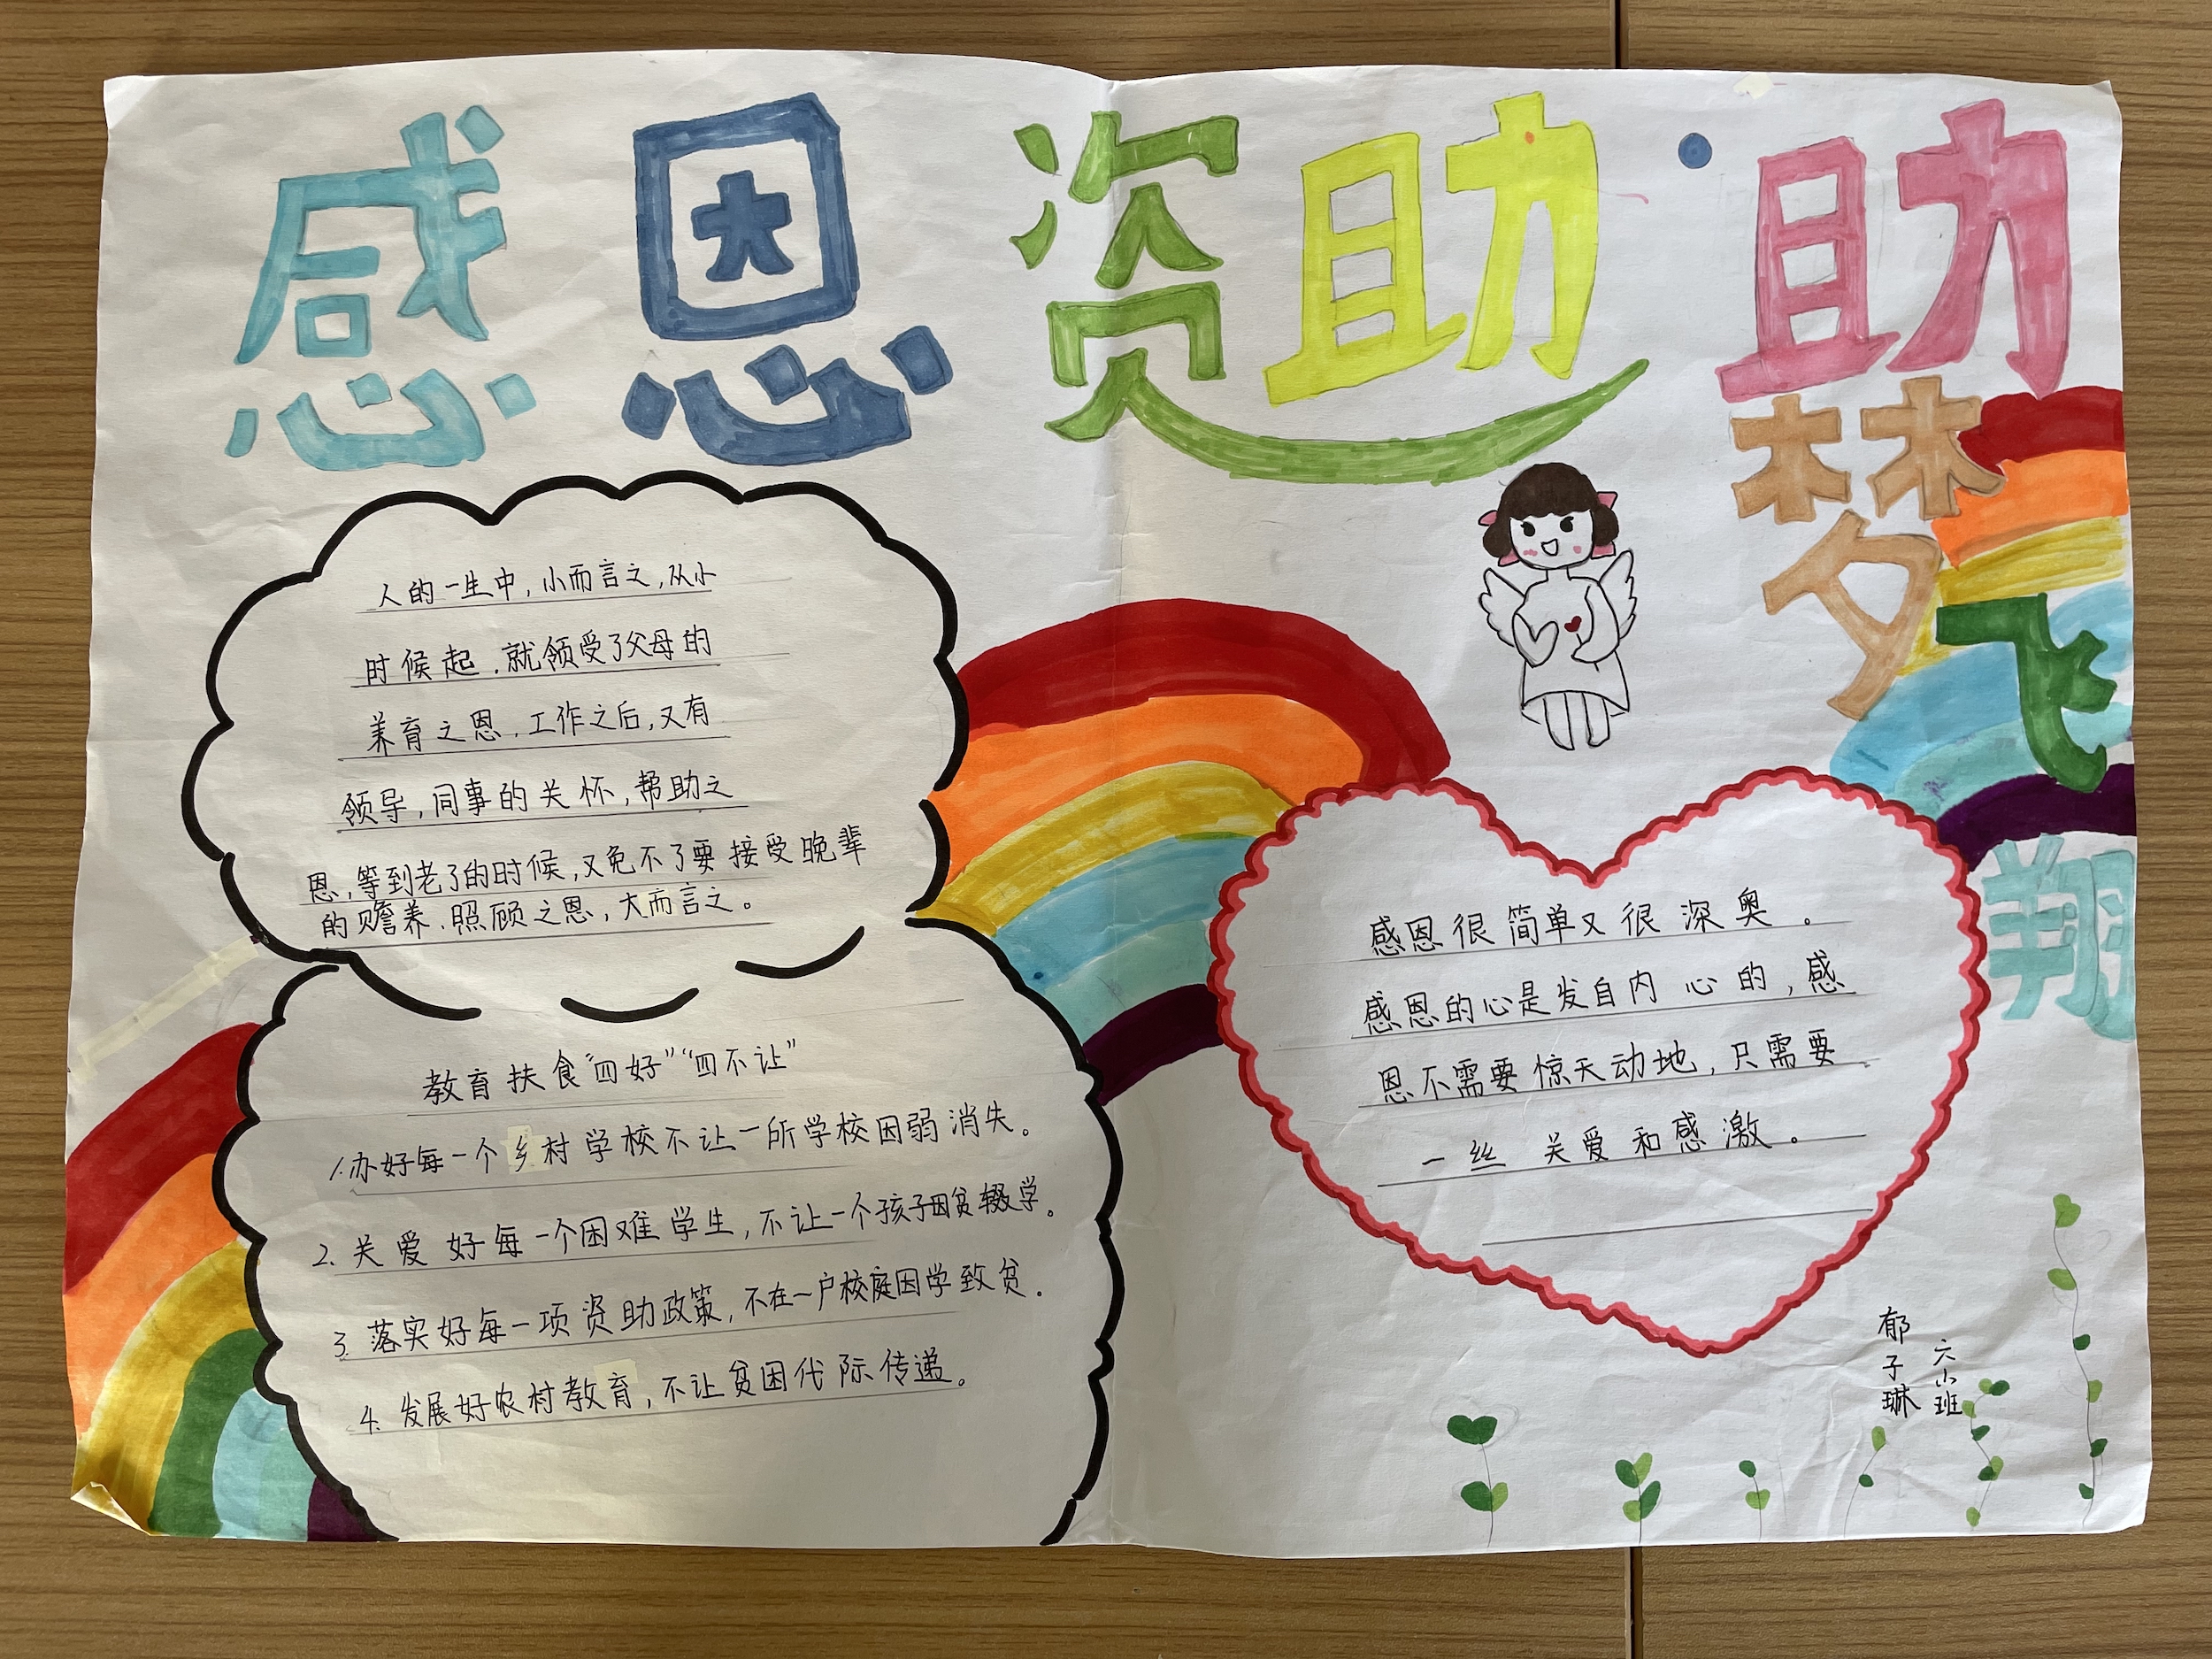 感恩资助·助
梦
飞
翔
人的一生中,小而言之,从小
时候起,就领受了父母的
养育之恩,工作之后,又有
领导,同事的关怀,帮助之
恩,等到老了的时候,又免不了要接受晚辈
的赡养,照顾之恩,大而言之。
教育扶食“四好”“四不让”
1.办好每一个乡村学校不让一所学校因弱消失。
2.关爱好每一个困难学生,不让一个孩子因贫辍学。
3.落实好每一项资助政策,不在一户校庭因学致贫。
4.发展好农村教育,不让贫困代际传递。
感恩很简单又很深奥。
感恩的心是发自内心的,感
恩不需要惊天动地,只需要
一丝关爱和感激。
六小班
郁子琳